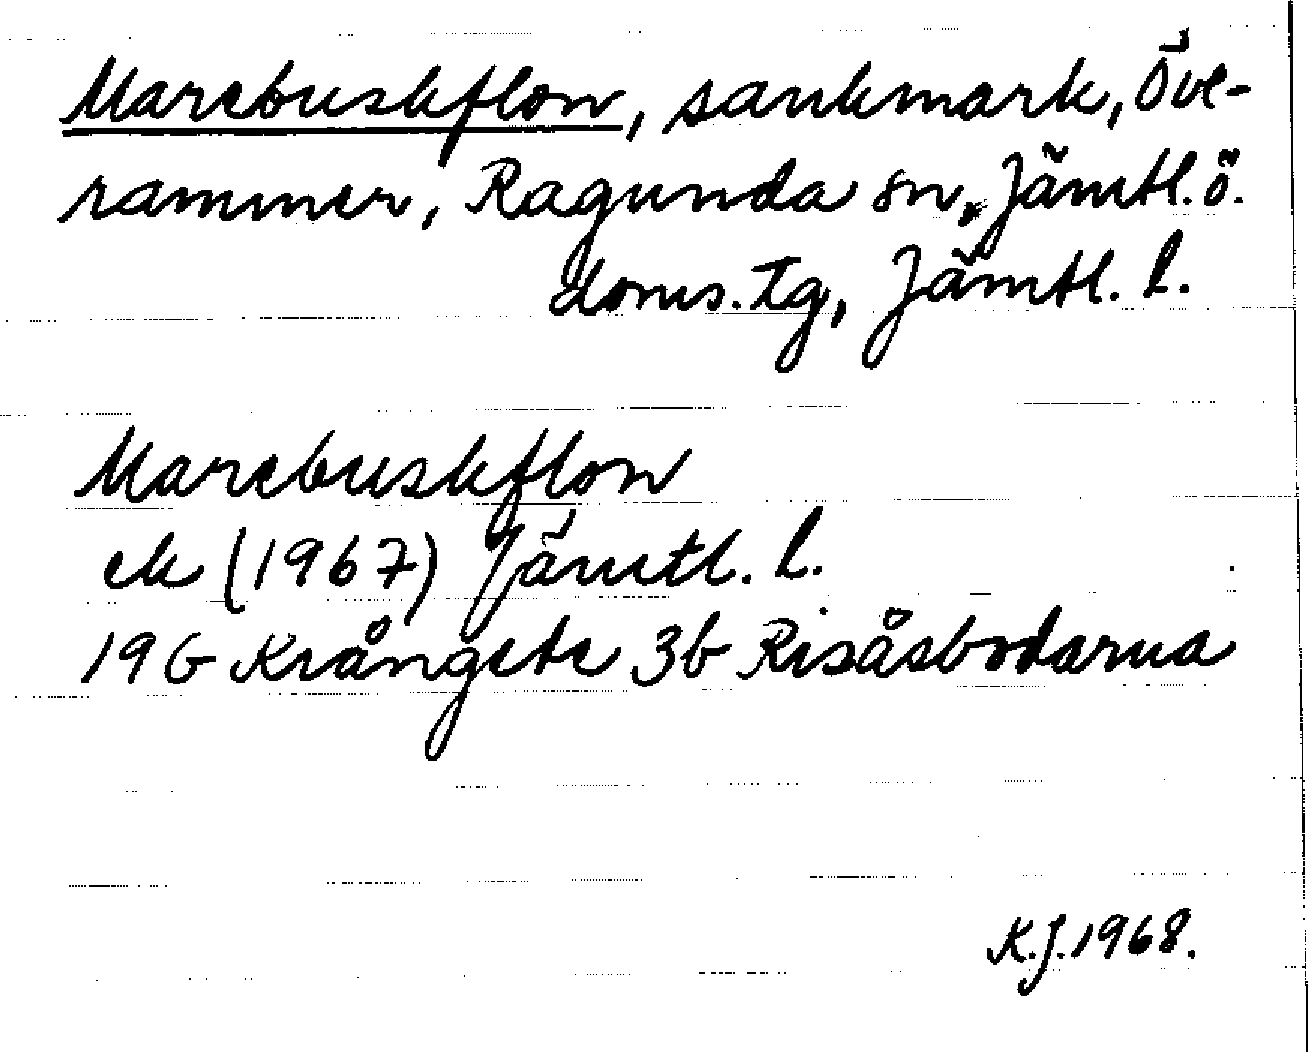 Marebuskflon, sankmark, Öve-
rammer, Ragunda sn, Jämtl. ö.
doms. tg, Jämtl. l.
Marebuskflon
ek (1967) Jämtl. l.
19G Krångede 3b Risåsbodarna
K.J. 1968.